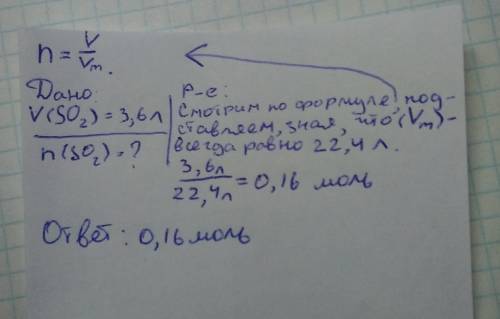 n = V/Vm.
Дано:
V(SO₂) = 3,6 л
n(SO₂) = ?
Р-е:
Смотрим по формуле, под-
ставляем, зная, что (Vm) -
всегда равно 22,4 л.
3,6л/22,4л = 0,16 моль
Ответ: 0,16 моль